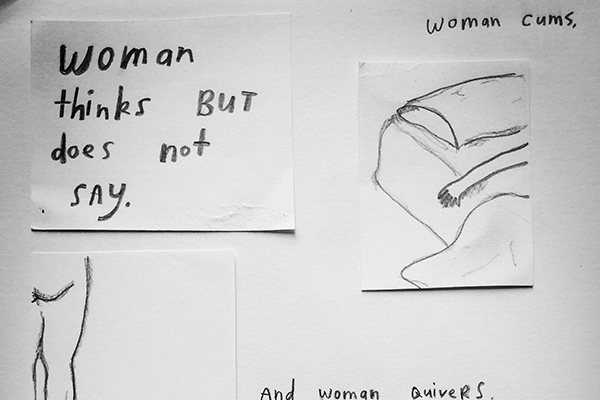 woman cums,
woman
thinks BUT
does not
SAY.
And woman quivers.